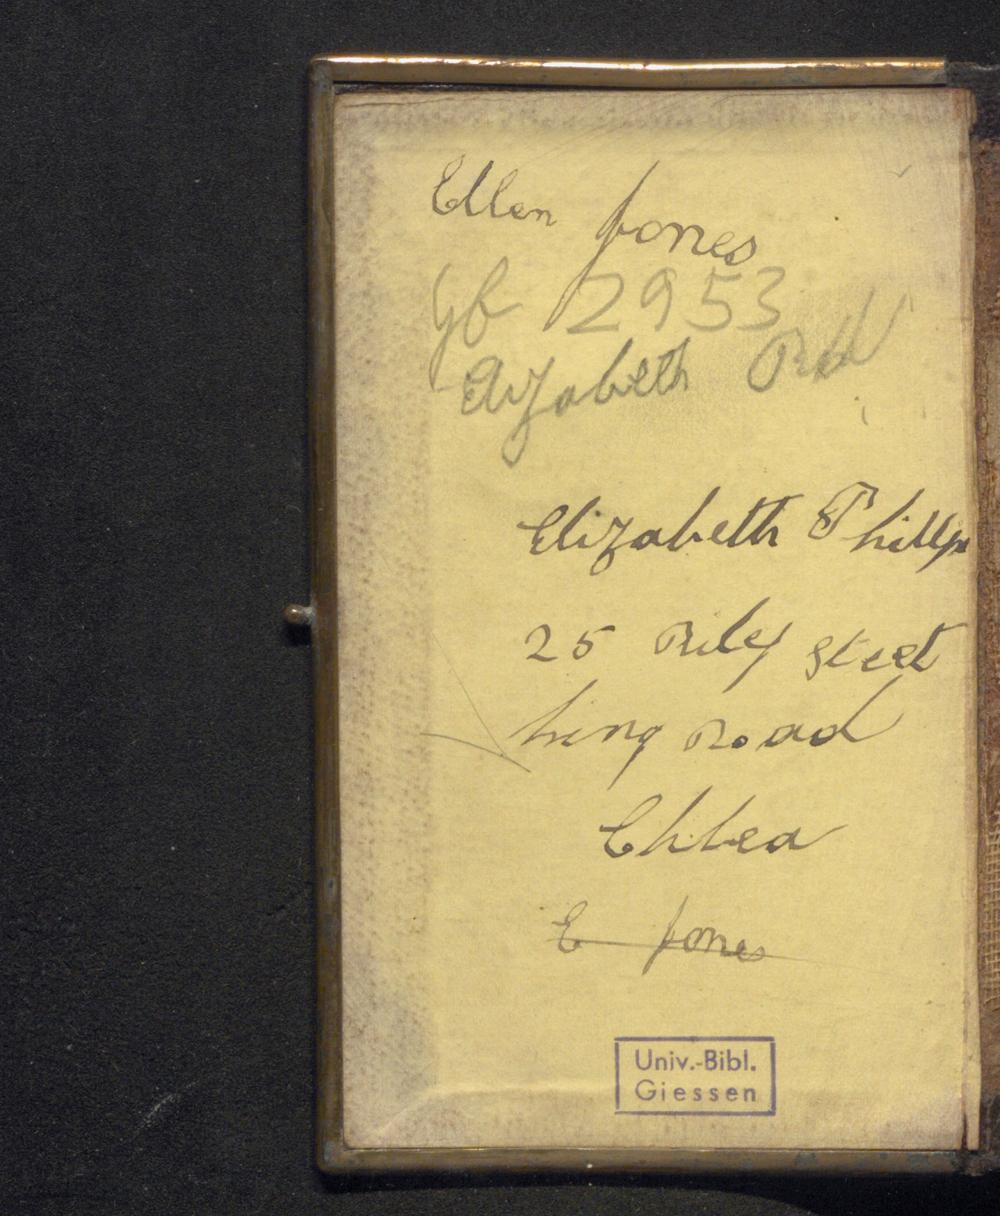 Ellen Jones
Yb 2953
Elizabeth
Elizabeth Phillips
25 Riley Street
King Road
Chlsea
E Jones
Univ.-Bibl.
Giessen